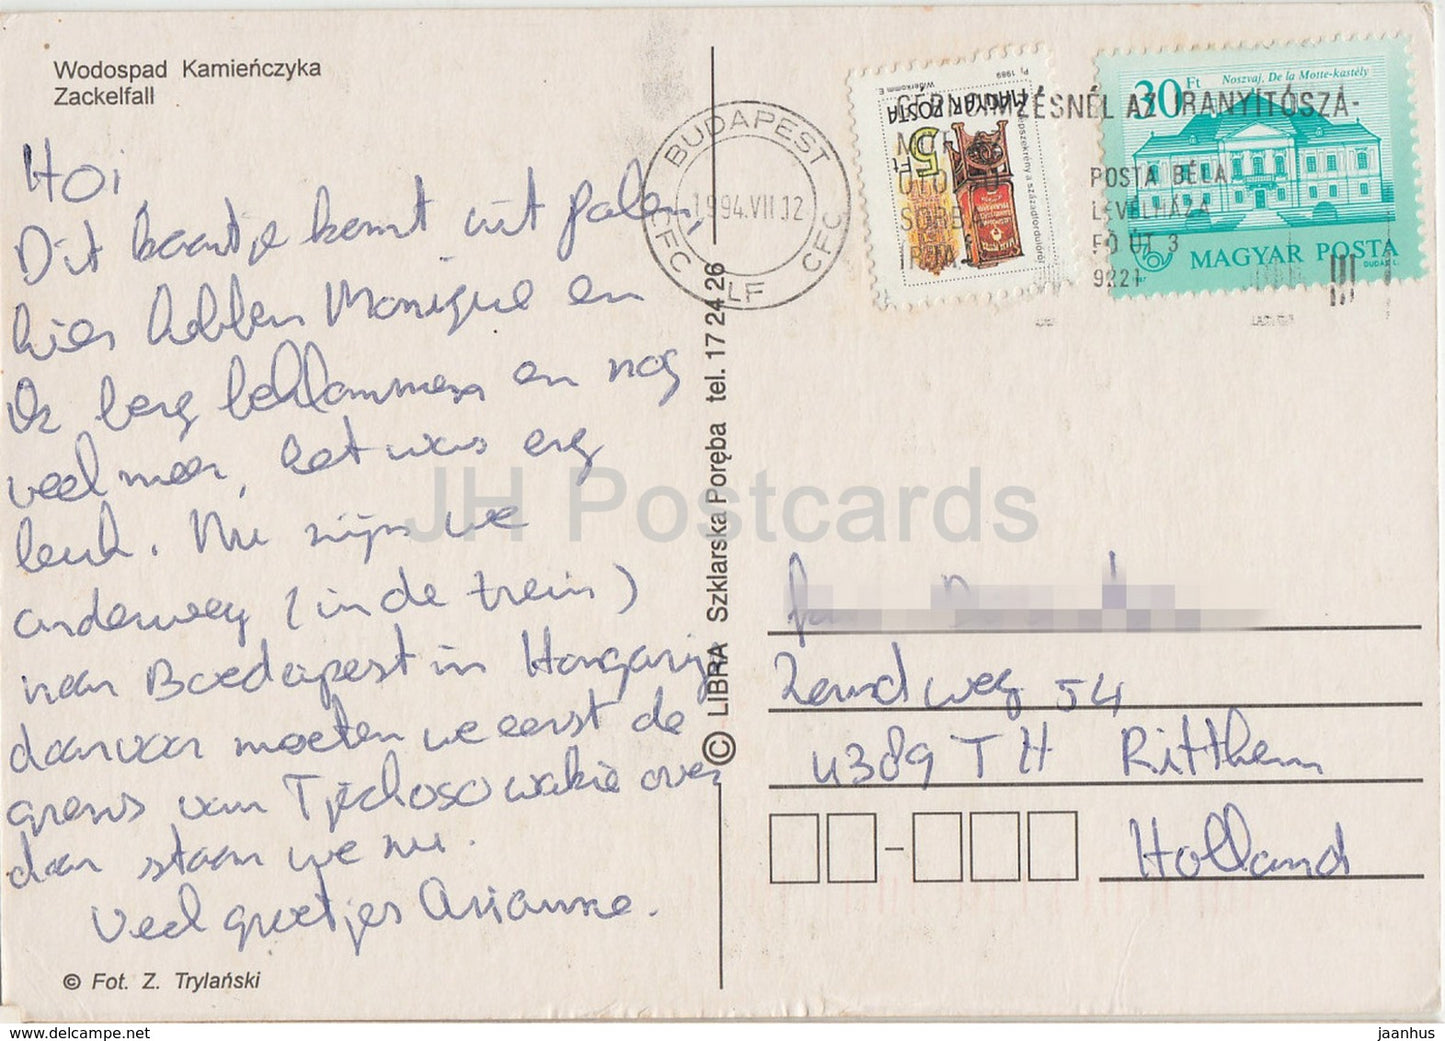 Wodospad Kamieńczyka
Zackelfall
Hoi
Dit kaartje komt uit Polen,
hier hebben Monique en
ik berg beklommen en nog
veel meer, het was erg
leuk. Nu zijn we
onderweg (in de trein)
naar Boedapest in Hongarije
daarvoor moeten we eerst de
grens van Tjechoslowakie over
daar staan we nu.
Veel groetjes Arianne.
© Fot. Z. Trylański
© LIBRA Szklarska Poręba tel. 17 24 26
BUDAPEST
1994.VII.12
CFC LF CFC
MAGYAR POSTA
5 Ft
Pj 1989
Widerkomm E.
30 Ft Noszvaj, De la Motte-kastély
MAGYAR POSTA
DUDÁS L.
CÍMZÉSNÉL AZ IRÁNYÍTÓSZÁ-
POSTA BÉLA
LEVÉLHÁZA
FŐ ÚT 3
9221
JH Postcards
Zandweg 54
4389 TH Ritthem
Holland
www.delcampe.net
jaanhus